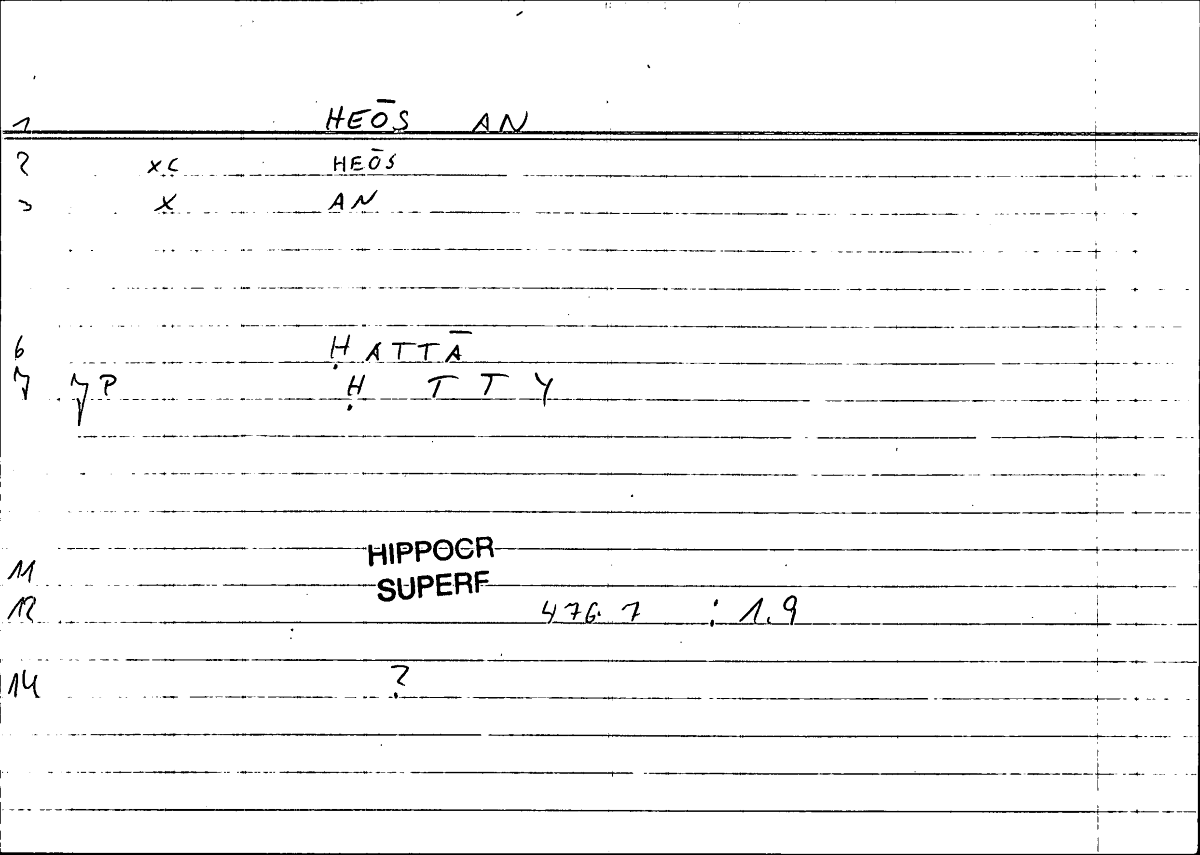 1 HEŌS AN
2 xc HEŌS
3 X AN
6 ḤATTĀ
7 7P Ḥ TTY
11 HIPPOCR
SUPERF
12 476.7 : 1.9
14 ?